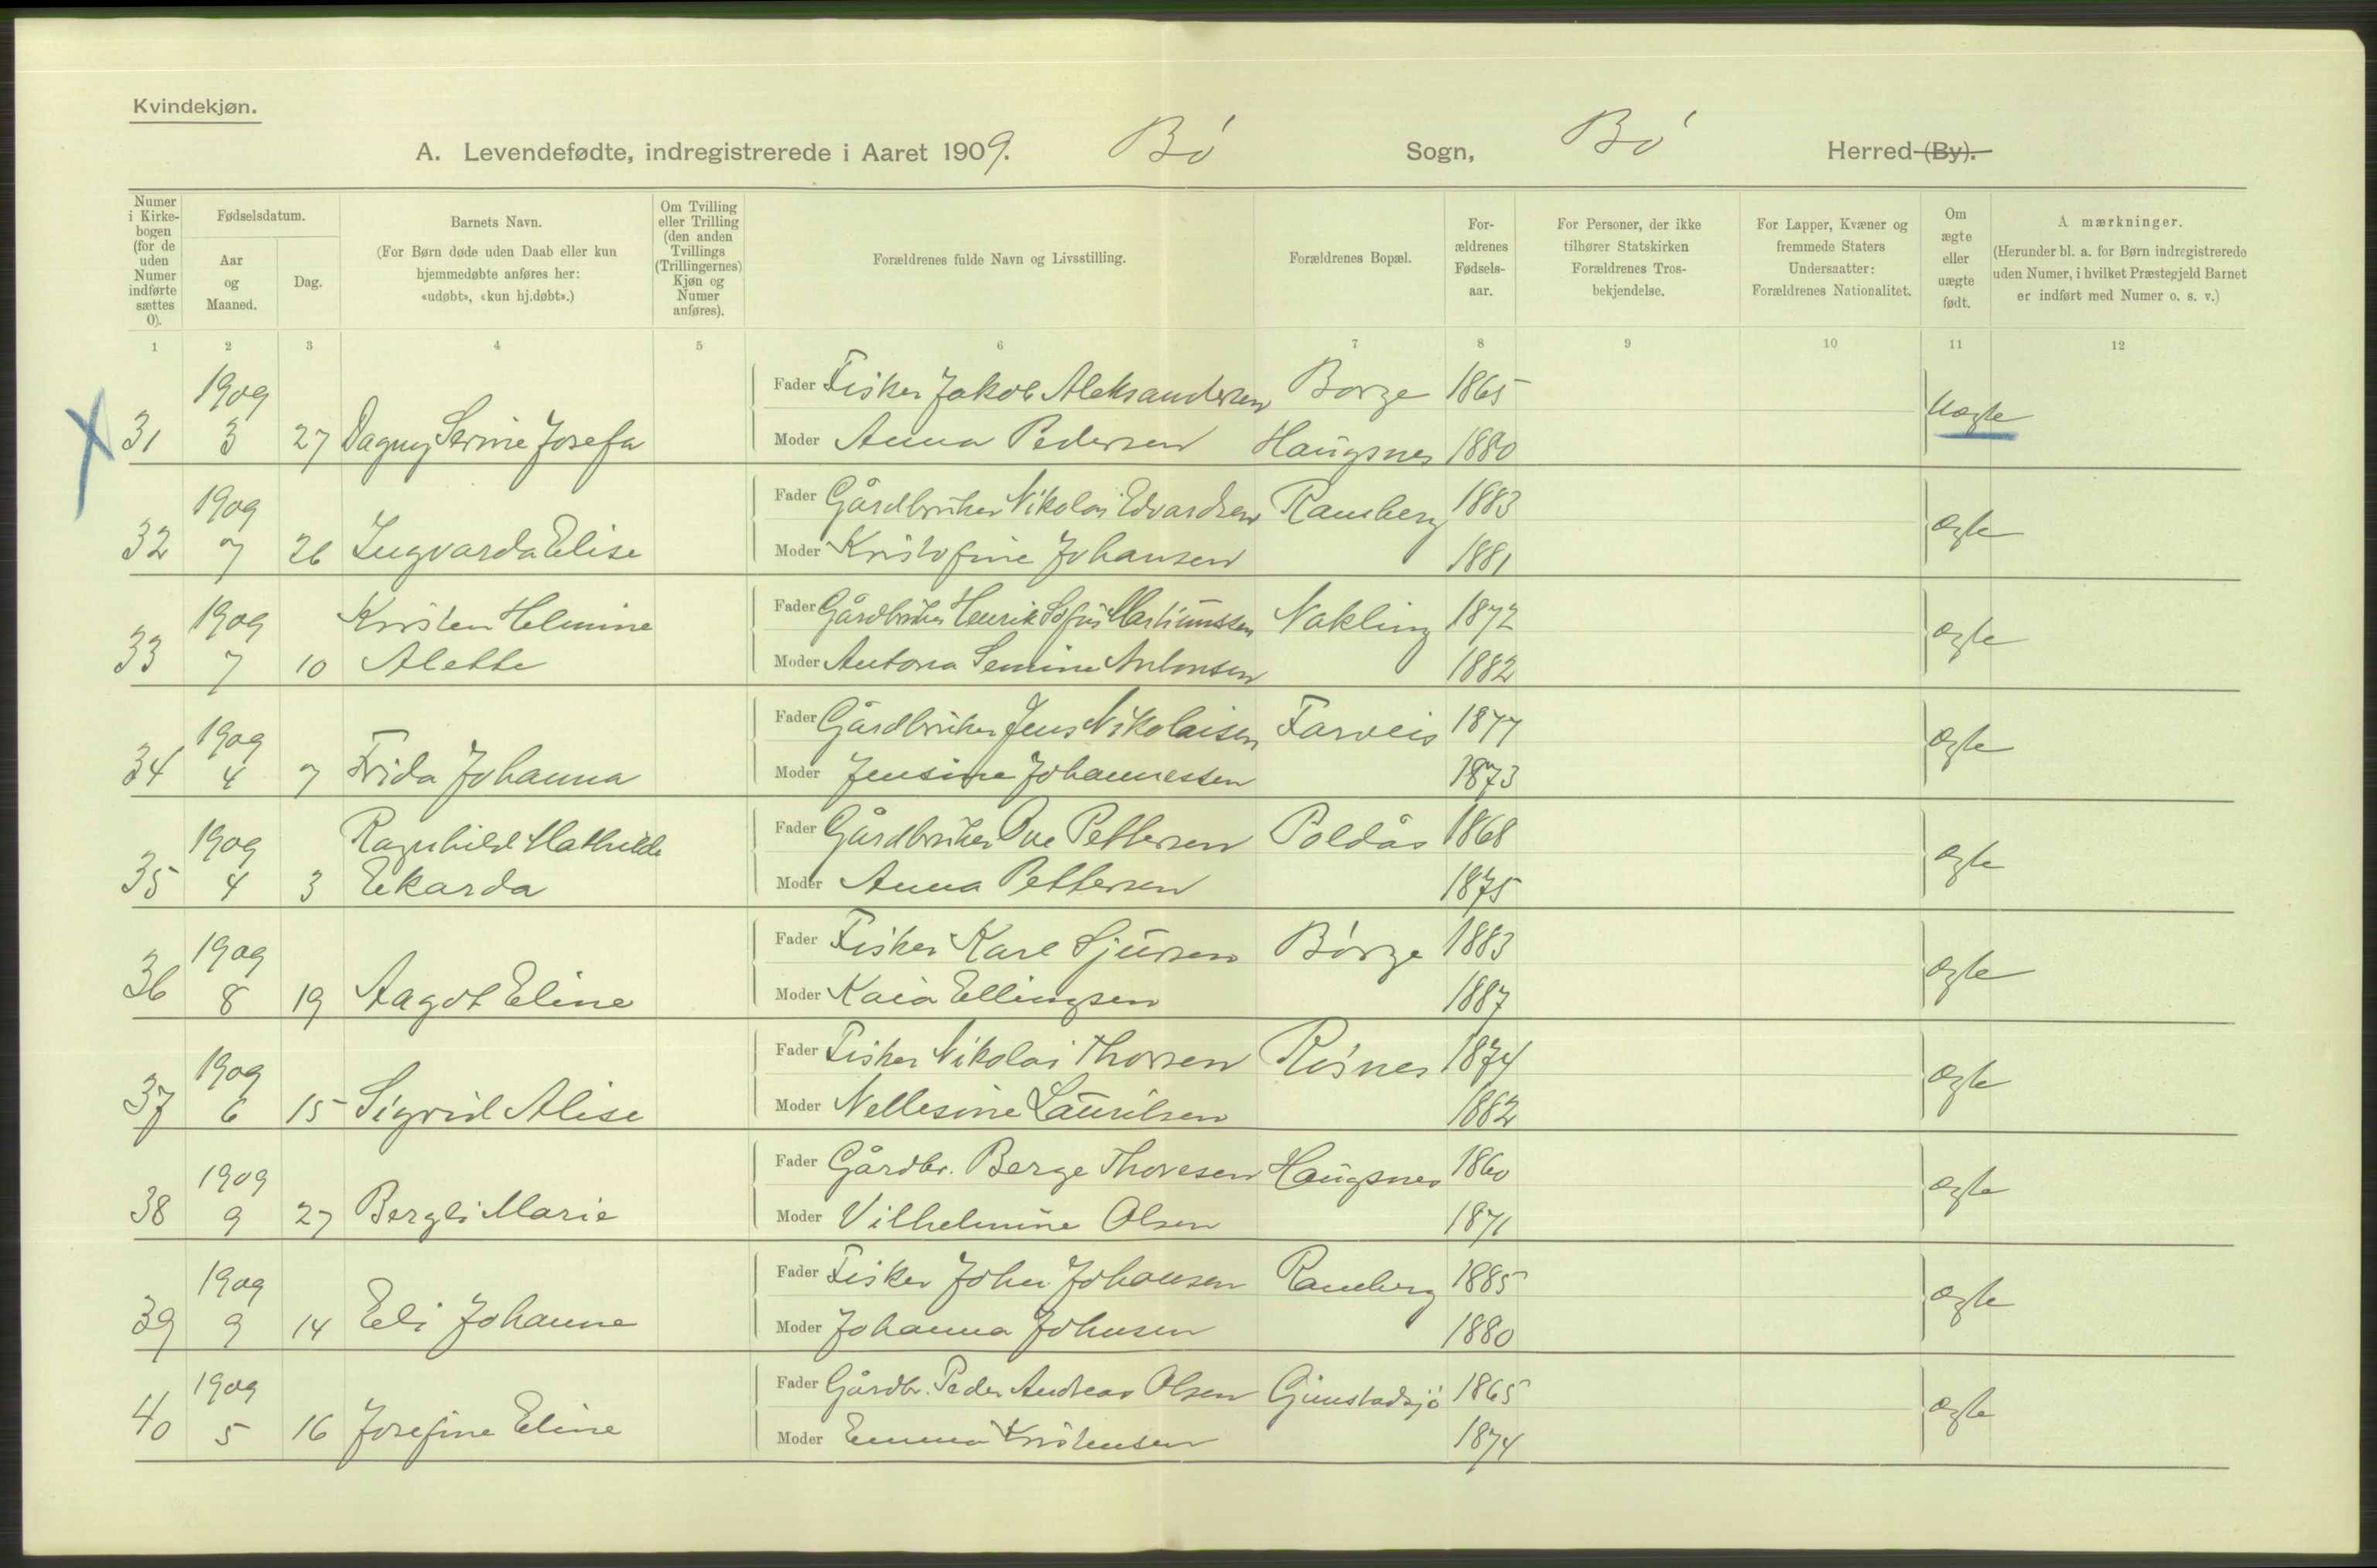 Kvindekjøn.
A. Levendefødte, indregistrerede i Aaret 1909. Bø Sogn, Bø Herred (By).
Numer i Kirke-bogen (for de uden Numer indførte sættes 0).
Fødselsdatum.
Aar og Maaned.
Dag.
Barnets Navn.
(For Børn døde uden Daab eller kun hjemmedøbte anføres her: «udøbt», «kun hj.døbt».)
Om Tvilling eller Trilling (den anden Tvillings (Trillingernes) Kjøn og Numer anføres).
Forældrenes fulde Navn og Livsstilling.
Forældrenes Bopæl.
For-ældrenes Fødsels-aar.
For Personer, der ikke tilhører Statskirken Forældrenes Tros-bekjendelse.
For Lapper, Kvæner og fremmede Staters Undersaatter: Forældrenes Nationalitet.
Om ægte eller uægte født.
A mærkninger.
(Herunder bl. a. for Børn indregistrerede uden Numer, i hvilket Præstegjeld Barnet er indført med Numer o. s. v.)
1 2 3 4 5 6 7 8 9 10 11 12
1909 Fader Fisker Jakob Aleksandersen Borge 1865 Uægte
X 31 3 27 Dagny Serine Josefa Moder Anna Pedersen Haugsnes 1880
1909 Fader Gårdbruker Nikolai Edvardsen Ramberg 1883 Ægte
32 7 26 Ingvarda Elise Moder Kristofine Johansen 1881
1909 Kristen Helmine Fader Gårdbruker Henrik Sofus Martinussen Nakling 1872 Ægte
33 7 10 Alette Moder Antona Semine Antonsen 1882
1909 Fader Gårdbruker Jens Nikolaisen Farveis 1877 Ægte
34 4 7 Frida Johanna Moder Jensine Johannessen 1873
1909 Ragnhild Mathilde Fader Gårdbruker Ove Pettersen Poldås 1868 Ægte
35 4 3 Ekarda Moder Anna Pettersen 1875
1909 Fader Fisker Karl Sjursen Børge 1883 Ægte
36 8 19 Aagot Eline Moder Kaia Ellingsen 1887
1909 Fader Fisker Nikolai Thorsen Risnes 1874 Ægte
37 6 15 Sigrid Alise Moder Nellesine Lauritsen 1882
1909 Fader Gårdbr. Berge Thoresen Haugsnes 1860 Ægte
38 9 27 Bergli Marie Moder Vilhelmine Olsen 1871
1909 Fader Fisker John Johansen Ramberg 1885 Ægte
39 9 14 Eli Johanne Moder Johanna Johnsen 1880
1909 Fader Gårdbr. Peder Andreas Olsen Gimstadsjø 1865 Ægte
40 5 16 Josefine Eline Moder Emma Kristensen 1874